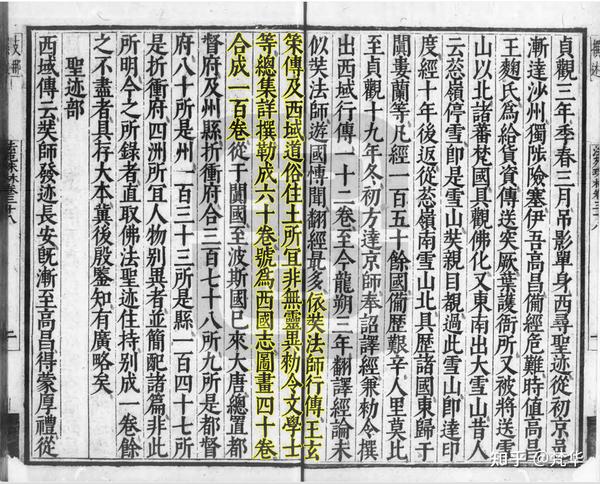 貞觀三年季春三月吊影單身西尋聖迹從初京邑
漸達沙州獨陟險塞伊吾高昌備經危難時值高昌
王麴氏為給貨資傳送突厥葉護衙所又被將送雪
山以北諸蕃梵國具觀佛化又東南出大雪山昔人
云葱嶺停雪即是雪山奘親目覩過此雪山即達印
度經十年後返從葱嶺南雪山北具歷諸國東歸于
闐婁蘭等凡經一百五十餘國備歷艱辛人里莫比
至貞觀十九年冬初方達京師奉詔譯經兼勑令撰
出西域行傳一十二卷至今龍朔三年翻譯經論未
似奘法師遊國博聞翻經最多依奘法師行傳王玄
策傳及西域道俗住土所宜非無靈異勑令文學士
等總集詳撰勒成六十卷號為西國志圖畫四十卷
合成一百卷從于闐國至波斯國已來大唐總置都
督府及州縣折衝府合三百七十八所九所是都督
府八十所是州一百三十三所是縣一百四十七所
是折衝府四洲所宜人物別異者並簡配諸篇非此
所明今之所錄者直取佛法聖迹住持別成一卷餘
之不盡者具存大本冀後殷鑒知有廣略矣
聖迹部
西域傳云奘師發迹長安既漸至高昌得蒙厚禮從
知乎 @梵华